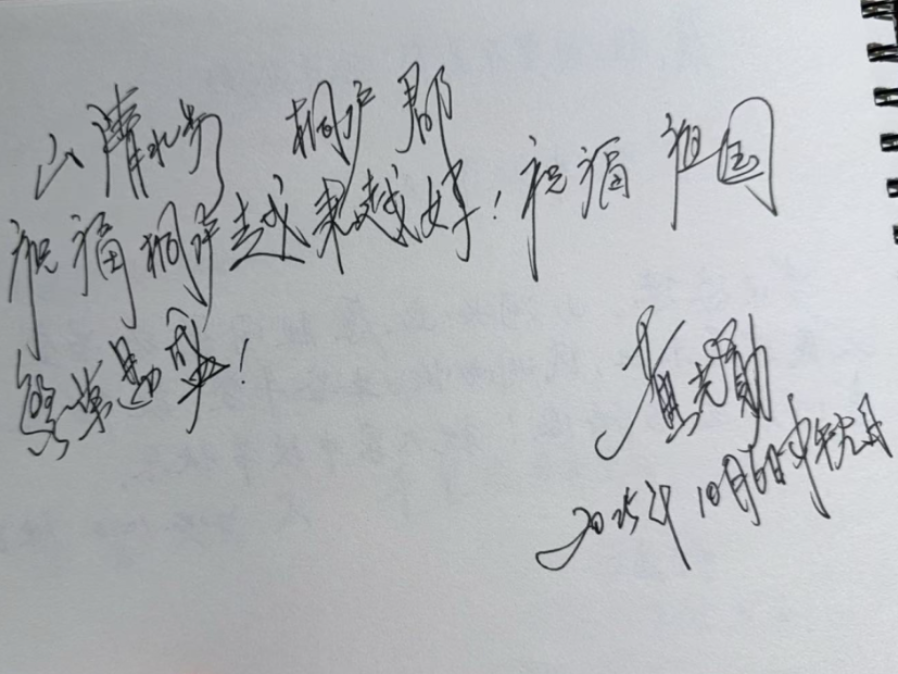 山清水秀 桐庐郡
祝福桐庐越来越好！祝福祖国
繁荣昌盛！
2025年10月6日中秋